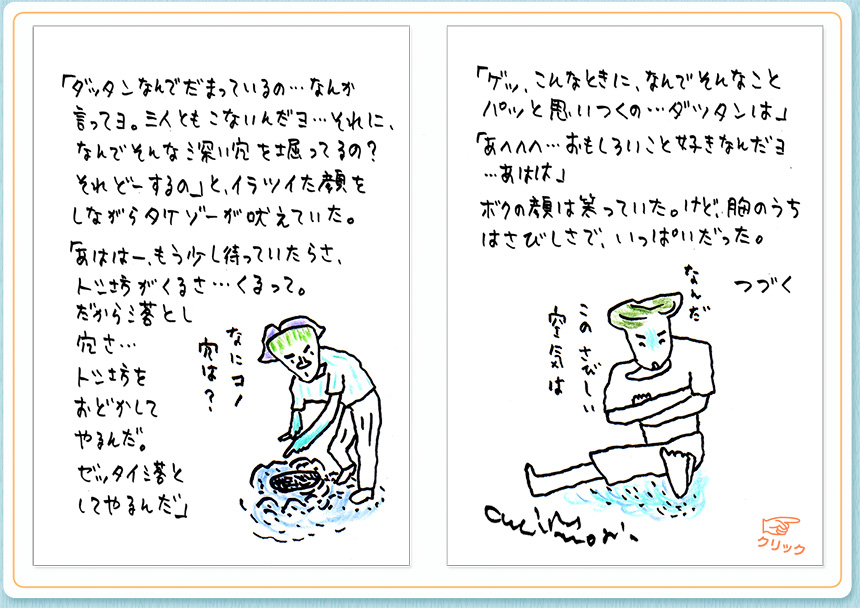 「ダッタンなんでだまっているの…なんか
言ってヨ。三人ともこないんだヨ…それに、
なんでそんな深い穴を堀ってるの？
それどーするの」と、イラツイた顔を
しながらタケゾーが吠えていた。
「あははー、もう少し待っていたらさ、
トン坊がくるさ…くるって。
だから落とし
穴さ…
トン坊を
おどかして
やるんだ。
ゼッタイ落と
してやるんだ」
なにコノ
穴は？
「ゲッ、こんなときに、なんでそんなこと
パッと思いつくの…ダッタンは」
「あへへへ…おもしろいこと好きなんだヨ
…あはは」
ボクの顔は笑っていた。けど、胸のうち
はさびしさで、いっぱいだった。
つづく
なんだ
このさびしい
空気は
クリック